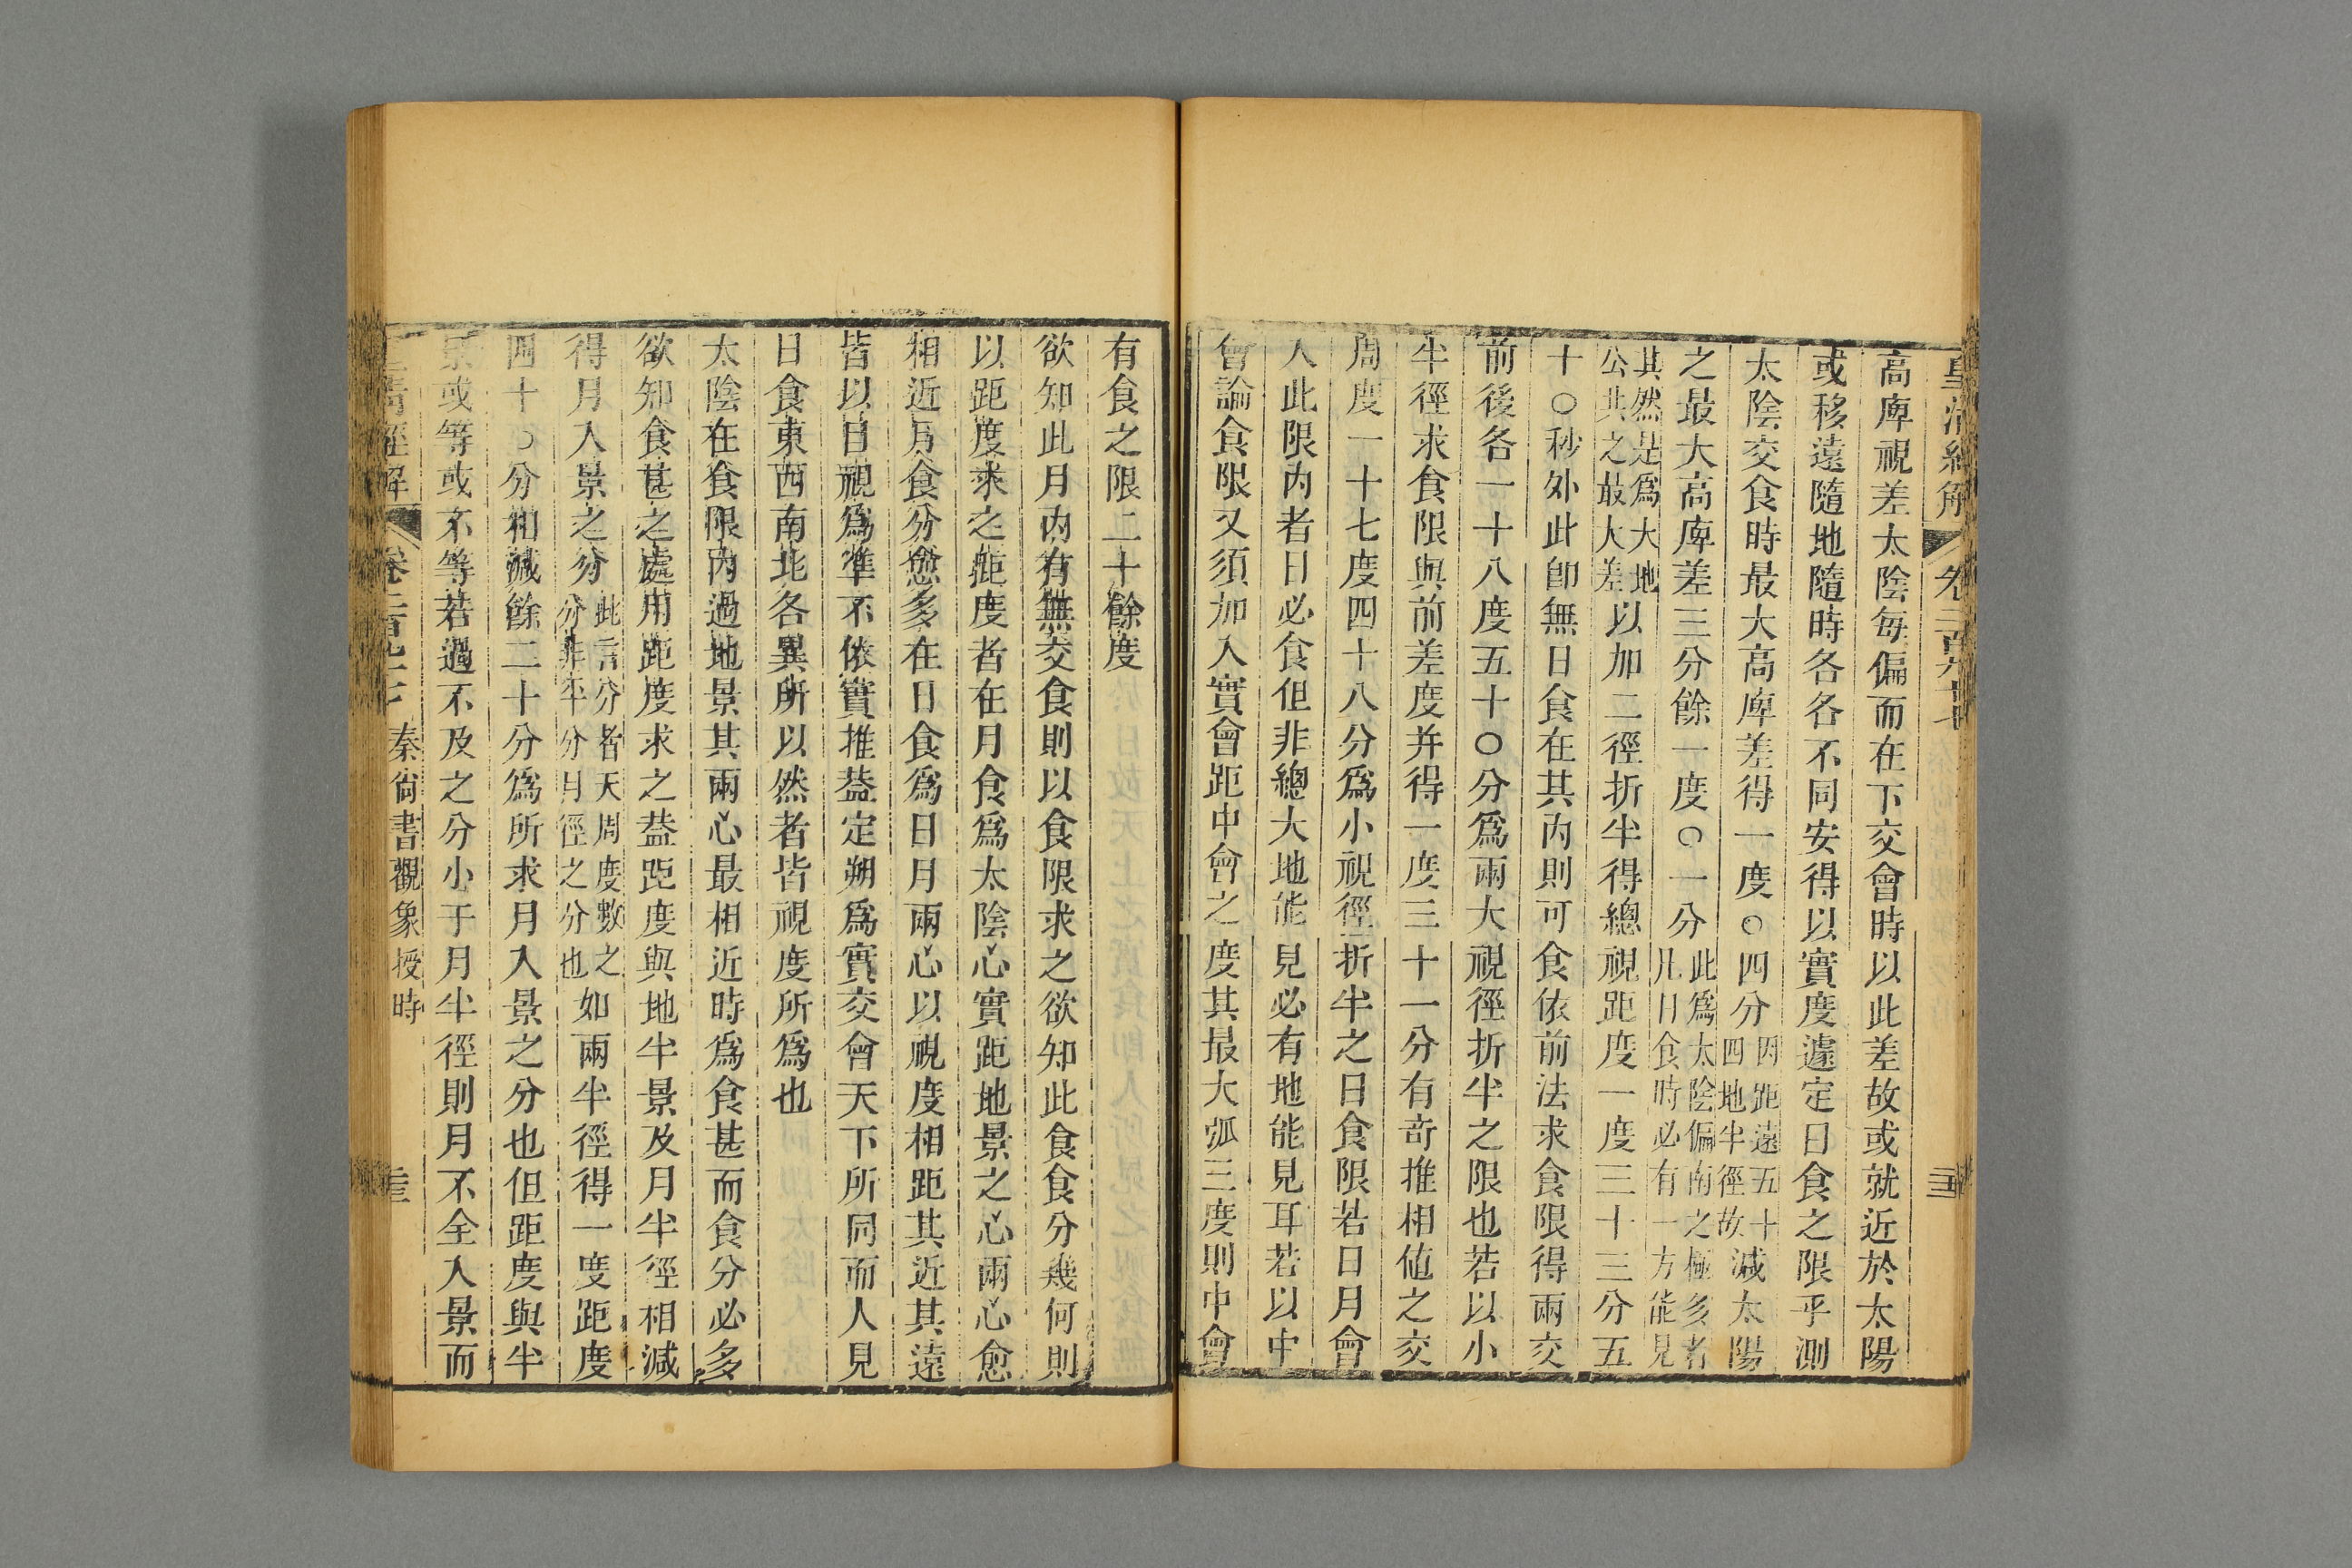 高庳視差太陰每偏而在下交會時以此差故或就近於太陽
或移遠隨地隨時各各不同安得以實度遽定日食之限乎測
太陰交食時最大高庳差得一度〇四分因距遠五十四地半徑故減太陽
之最大高庳差三分餘一度〇一分此爲太陰偏南之極多者凡日食時必有一方能見
其然是爲大地公共之最大差以加二徑折半得總視距度一度三十三分五
十〇秒外此卽無日食在其內則可食依前法求食限得兩交
前後各一十八度五十〇分爲兩大視徑折半之限也若以小
半徑求食限與前差度幷得一度三十一分有奇推相値之交
周度一十七度四十八分爲小視徑折半之日食限若日月會
入此限內者日必食但非總大地能見必有地能見耳若以中
會論食限又須加入實會距中會之度其最大弧三度則中會
有食之限二十餘度
欲知此月內有無交食則以食限求之欲知此食食分幾何則
以距度求之距度者在月食爲太陰心實距地景之心兩心愈
相近月食分愈多在日食爲日月兩心以視度相距其近其遠
皆以日視爲準不依實推葢定朔爲實交會天下所同而人見
日食東西南北各異所以然者皆視度所爲也
太陰在食限內過地景其兩心最相近時爲食甚而食分必多
欲知食甚之處用距度求之葢距度與地半景及月半徑相減
得月入景之分此言分者天周度數之分非平分月徑之分也如兩半徑得一度距度
四十〇分相減餘二十分爲所求月入景之分也但距度與半
景或等或不等若過不及之分小于月半徑則月不全入景而
秦尙書觀象授時